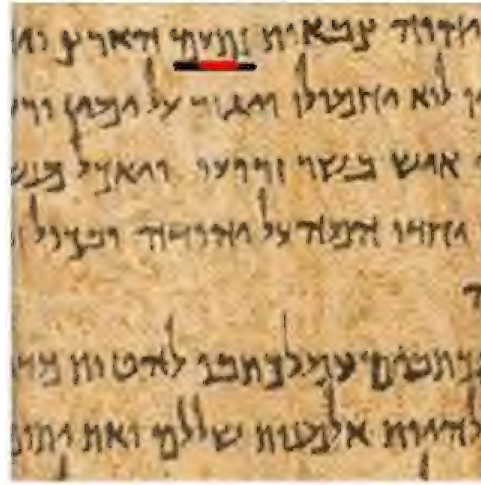 יהוה צבאות נתעם הארץ
לוא יחמולו ויגזור על ימין
איש בשר זרועו יואכלו
יחדו המה על יהודה בכול
עמל כתבו להטות
להיות אלמנות שללם ואת